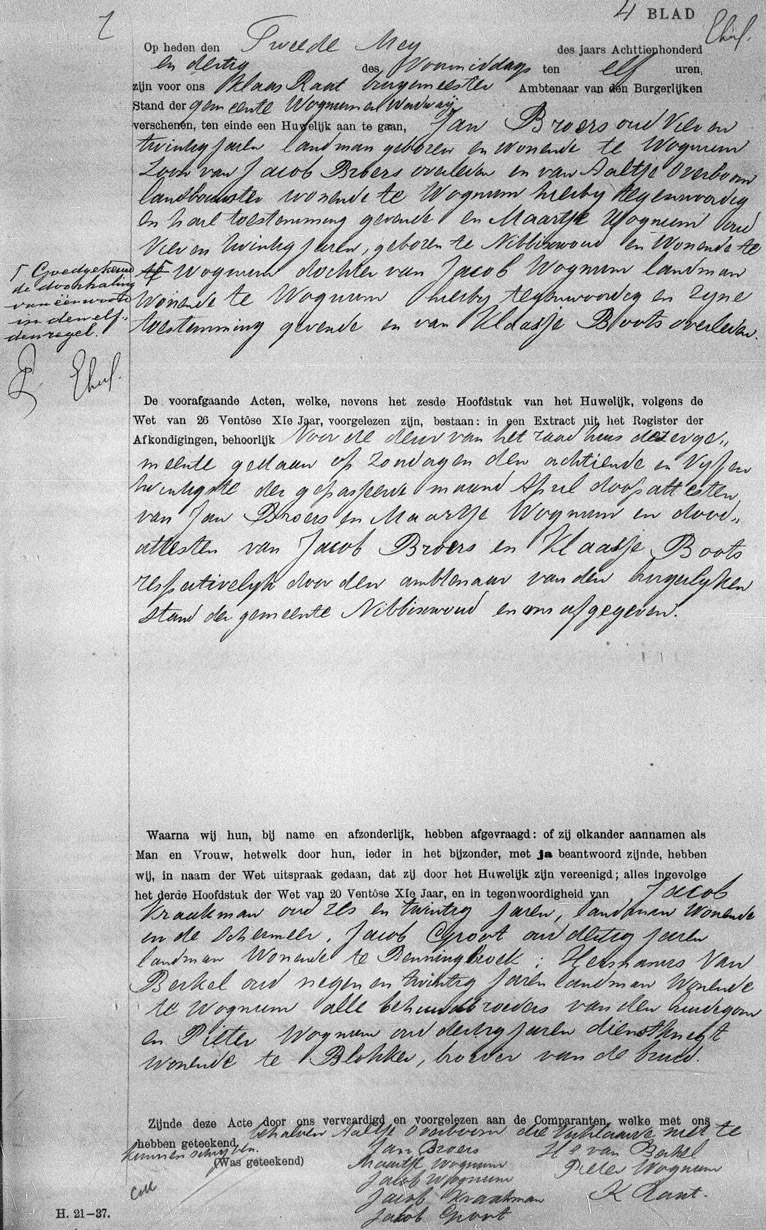 1
4 BLAD
Op heden den Tweede Mey des jaars Achttienhonderd
en dertig des Voormiddags ten elf uren,
zijn voor ons Klaas Raat burgemeester Ambtenaar van den Burgerlijken
Stand der gemeente Wognum en Wadway
verschenen, ten einde een Huwelijk aan te gaan, Jan Broers oud Vier en
twintig jaren landman geboren en wonende te Wognum
Zoon van Jacob Broers overleden en van Aaltje Overboom
landbouwster wonende te Wognum hierby tegenwoordig
en haar toestemming gevende en Maartje Wognum oud
Vier en twintig jaren, geboren te Nibbixwoud en Wonende te
Wognum dochter van Jacob Wognum landman
Wonende te Wognum hierby tegenwoordig en zyne
toestemming gevende en van Klaasje Boots overleden.
Goedgekeurd
de doorhaling
van één woord
in den elf-
den regel.
De voorafgaande Acten, welke, nevens het zesde Hoofdstuk van het Huwelijk, volgens de
Wet van 26 Ventôse XIe Jaar, voorgelezen zijn, bestaan: in een Extract uit het Register der
Afkondigingen, behoorlijk Voor de deur van het raadhuis dezer ge„
meente gedaan op Zondagen den achtiende en Vyf en
twintigste der gepasseerde maand April doop attesten
van Jan Broers en Maartje Wognum en dood„
attesten van Jacob Broers en Klaasje Boots
respectivelyk door den ambtenaar van den burgerlyken
stand der gemeente Nibbixwoud en ons afgegeven.
Waarna wij hun, bij name en afzonderlijk, hebben afgevraagd: of zij elkander aannamen als
Man en Vrouw, hetwelk door hun, ieder in het bijzonder, met ja beantwoord zijnde, hebben
wij, in naam der Wet uitspraak gedaan, dat zij door het Huwelijk zijn vereenigd; alles ingevolge
het derde Hoofdstuk der Wet van 20 Ventôse XIe Jaar, en in tegenwoordigheid van Jacob
Kraakman oud zes en twintig jaren, landman Wonende
in de Schermeer, Jacob Groot oud dertig jaren
landman Wonende te Benningbroek; Hermanus Van
Berkel oud negen en twintig jaren landman Wonende
te Wognum alle behuwdbroeders van den bruidegom
en Pieter Wognum oud dertig jaren dienstknegt
wonende te Blokker, broeder van de bruid.
Zijnde deze Acte door ons vervaardigd en voorgelezen aan de Comparanten, welke met ons
hebben geteekend, behalven Aaltje Overboom die Verklaarde niet te
kunnen schryven.
(Was geteekend)
Jan Broers
Maartje Wognum
Jacob Wognum
Jacob Kraakman
Jacob Groot
Hs van Bekel
Pieter Wognum
K Raat.
H. 21–37.